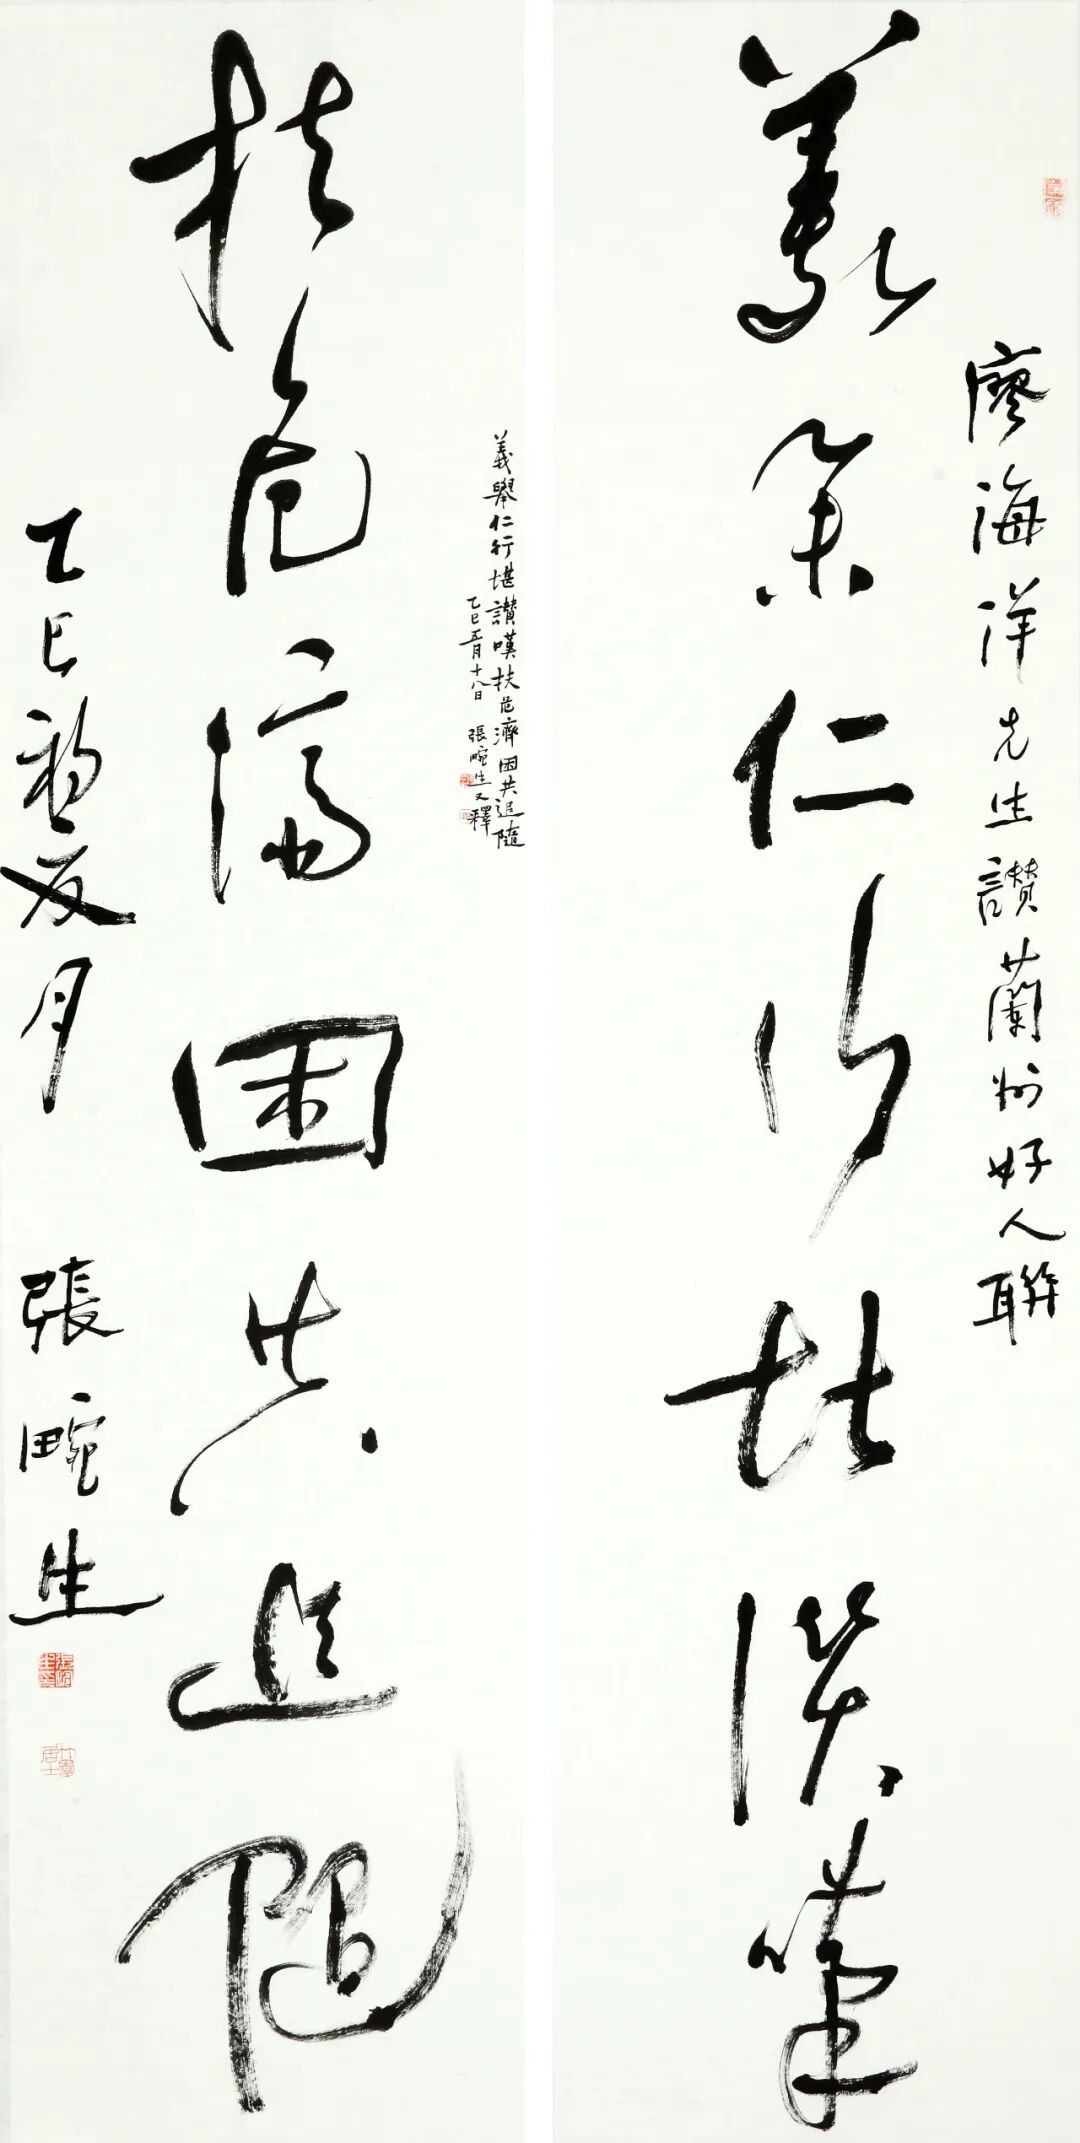 廖海洋先生讚蘭州好人聯
義舉仁行堪讚嘆
義舉仁行堪讚嘆扶危濟困共追隨
乙巳五月十八日 張畹生又釋
扶危濟困共追隨
乙巳初夏月 張畹生